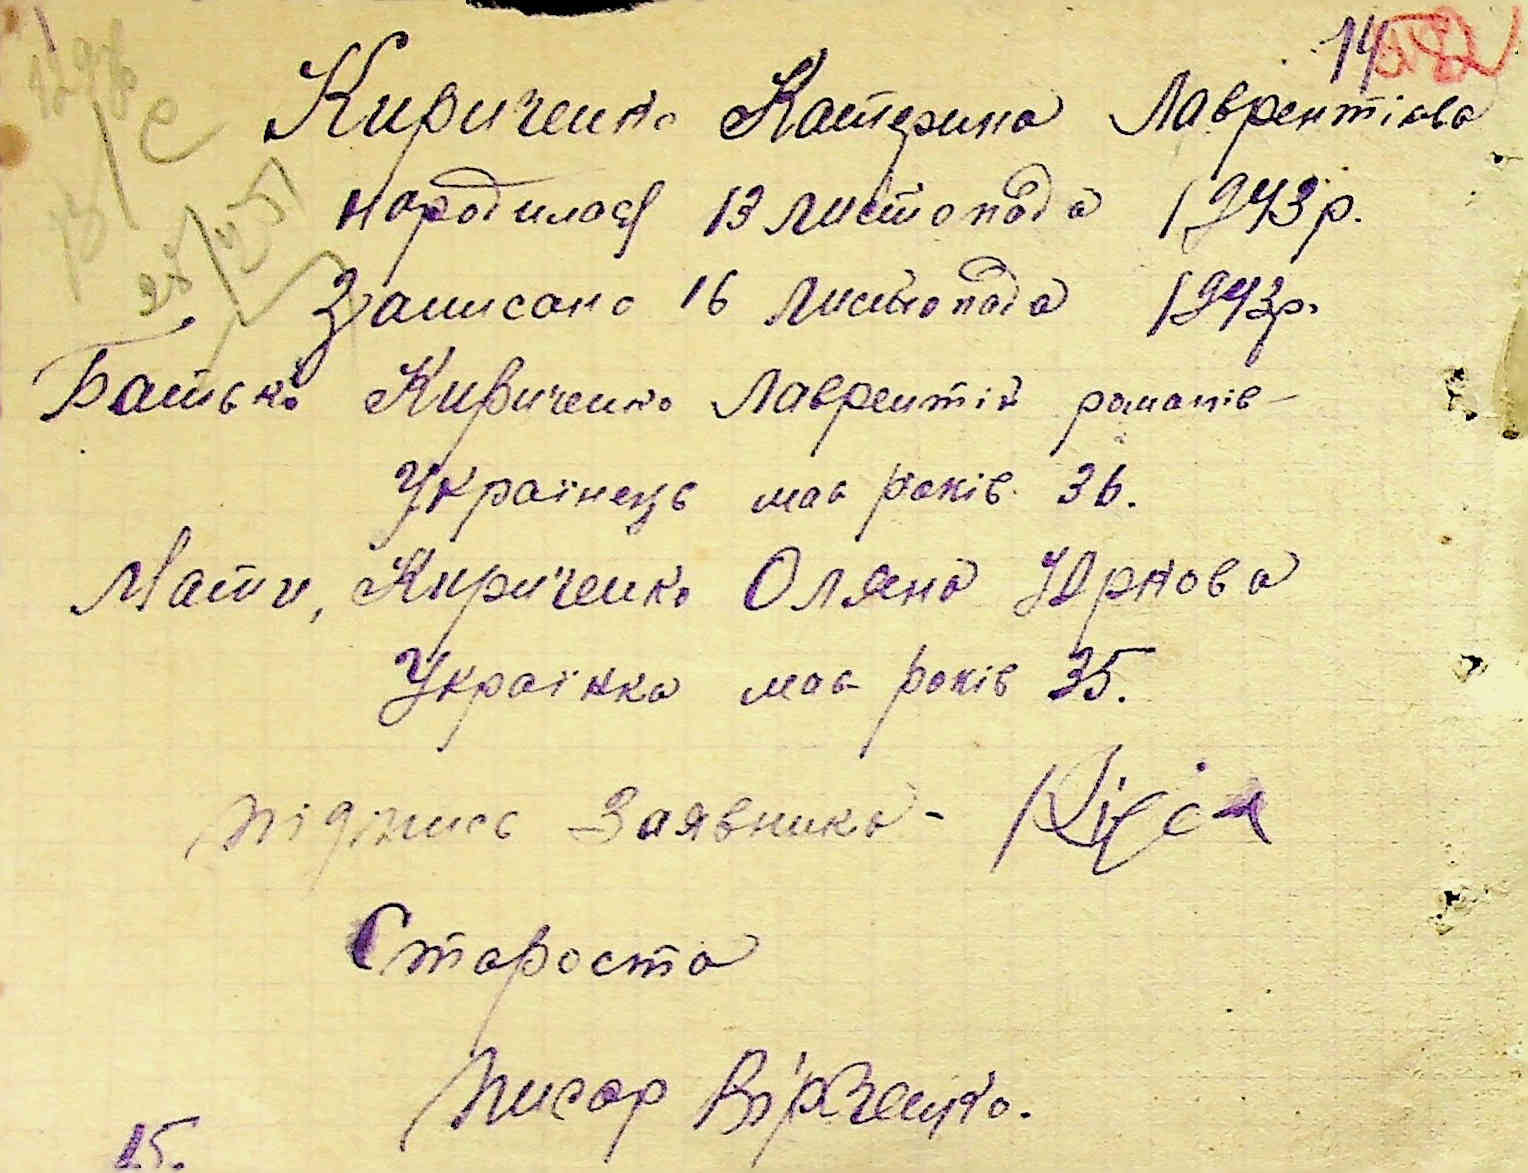 14
Кириченко Катерина Лаврентіова
народилася 13 листопада 1943р.
Записано 16 листопада 1943р.
Батько Кириченко Лаврентій романів-
Українець має років 36.
Мати, Кириченко Оляна Юркова
Українка має років 35.
підпись Заявника -
Староста
писар
15.